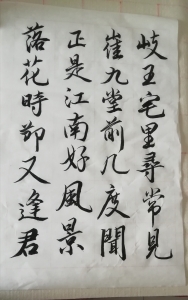 岐王宅里尋常見
崔九堂前几度聞
正是江南好風景
落花時節又逢君